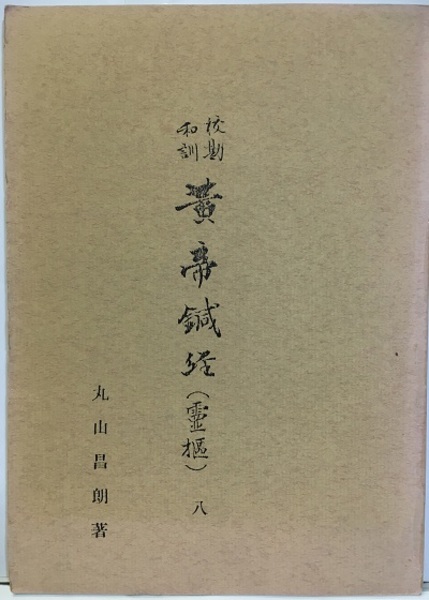 校勘
和訓
黄帝鍼経（靈樞）八
丸山昌朗著